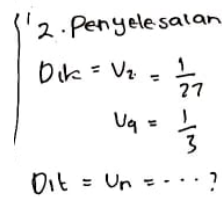 2. Penyelesaian
Dik = U₂ = 1/27
U₉ = 1/3
Dit = Un = ....?